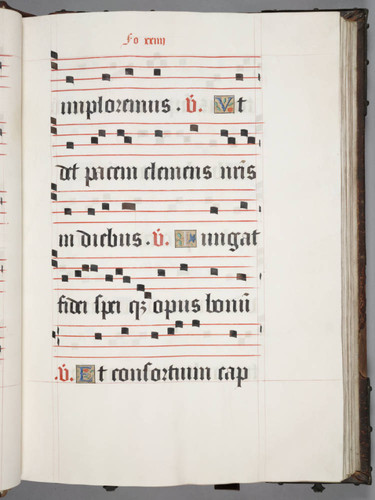 Fo xxiiij
imploremus . v̇. Vt
det pacem clemens nr̄is
in diebus . v̇. Iungat
fidei spei qȝ opus bonū
.v̇. Et consortium cap